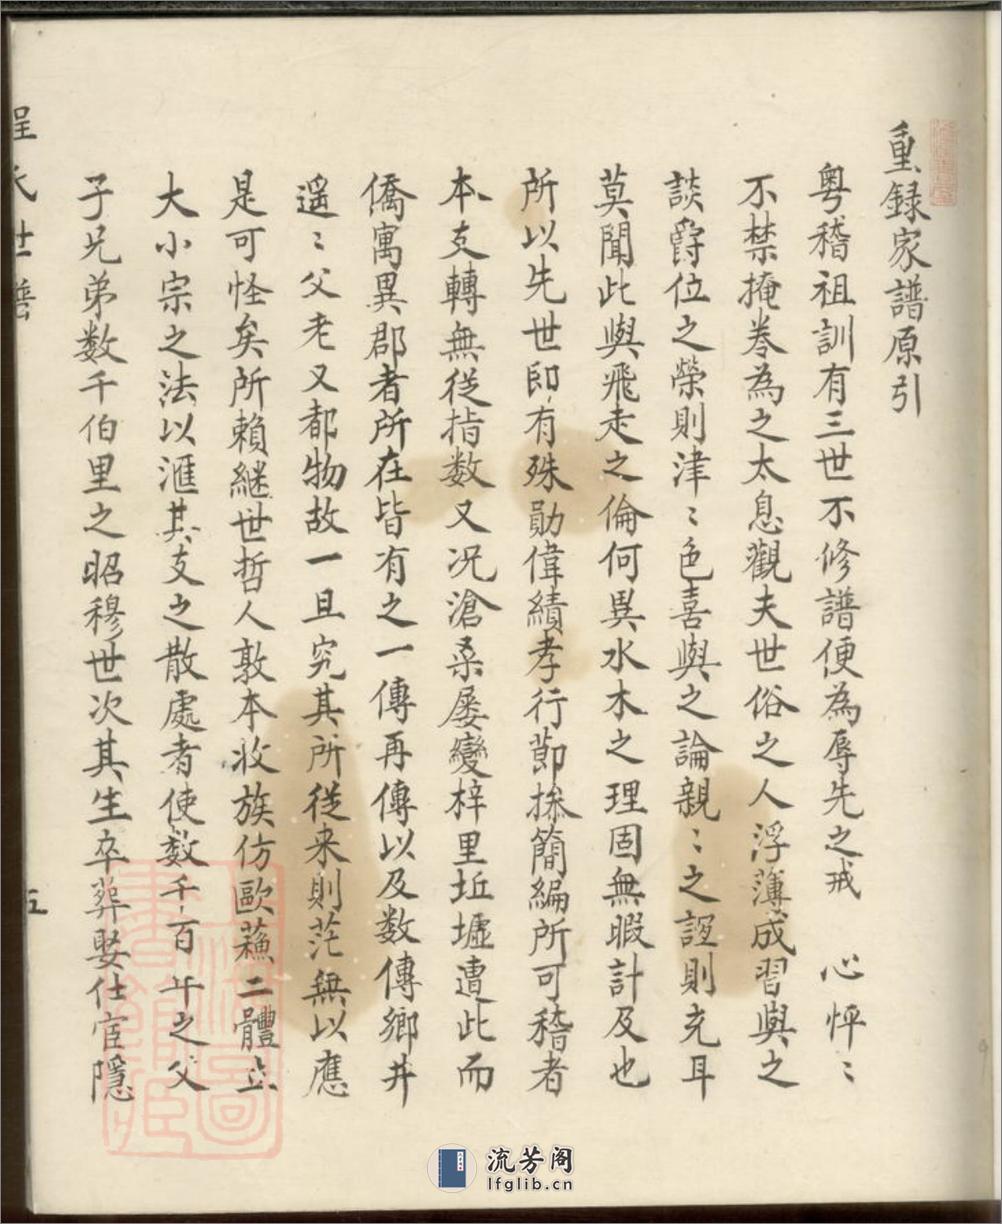 重録家譜原引
粵稽祖訓有三世不修譜便為辱先之戒 心怦〻
不禁掩卷為之太息觀夫世俗之人浮薄成習與之
談爵位之榮則津〻色喜與之論親〻之誼則充耳
莫聞此與飛走之倫何異水木之理固無暇計及也
所以先世即有殊勛偉績孝行節操簡編所可稽者
本支轉無從指数又况滄桑屡變梓里坵墟遭此而
僑寓異郡者所在皆有之一傳再傳以及数傳鄉井
遥〻父老又都物故一旦究其所從来則茫無以應
是可怪矣所賴継世哲人敦本收族仿歐蘓二體立
大小宗之法以滙其支之散處者使数千百年之父
子兄弟数千伯里之昭穆世次其生卒葬娶仕宦隱
程氏世譜
五
流芳阁
lfglib.cn